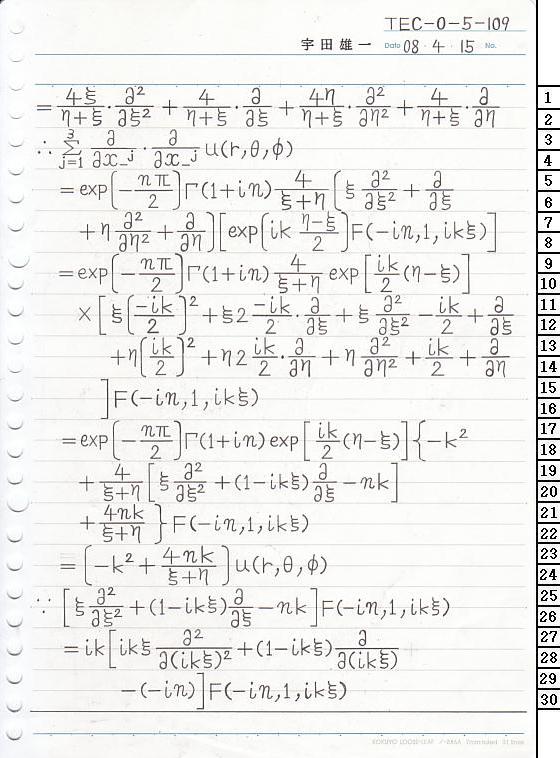 TEC-0-5-109
宇田雄一 Date 08・4・15 No.
= 4ξ/(η+ξ)・∂²/∂ξ² + 4/(η+ξ)・∂/∂ξ + 4η/(η+ξ)・∂²/∂η² + 4/(η+ξ)・∂/∂η
∴ Σ_{j=1}^{3} ∂/∂x_j・∂/∂x_j u(r,θ,φ)
= exp(-nπ/2)Γ(1+in) 4/(ξ+η) (ξ ∂²/∂ξ² + ∂/∂ξ
+ η ∂²/∂η² + ∂/∂η)[exp(ik (η-ξ)/2)F(-in,1,ikξ)]
= exp(-nπ/2)Γ(1+in) 4/(ξ+η) exp[ik/2 (η-ξ)]
×[ξ(-ik/2)² + ξ2 -ik/2・∂/∂ξ + ξ ∂²/∂ξ² - ik/2 + ∂/∂ξ
+η(ik/2)² + η2 ik/2・∂/∂η + η ∂²/∂η² + ik/2 + ∂/∂η
]F(-in,1,ikξ)
= exp(-nπ/2)Γ(1+in)exp[ik/2 (η-ξ)]{-k²
+ 4/(ξ+η) [ξ ∂²/∂ξ² + (1-ikξ)∂/∂ξ - nk]
+ 4nk/(ξ+η) }F(-in,1,ikξ)
= (-k² + 4nk/(ξ+η))u(r,θ,φ)
∵ [ξ ∂²/∂ξ² + (1-ikξ)∂/∂ξ - nk]F(-in,1,ikξ)
= ik[ikξ ∂²/∂(ikξ)² + (1-ikξ) ∂/∂(ikξ)
-(-in)]F(-in,1,ikξ)
1
2
3
4
5
6
7
8
9
10
11
12
13
14
15
16
17
18
19
20
21
22
23
24
25
26
27
28
29
30